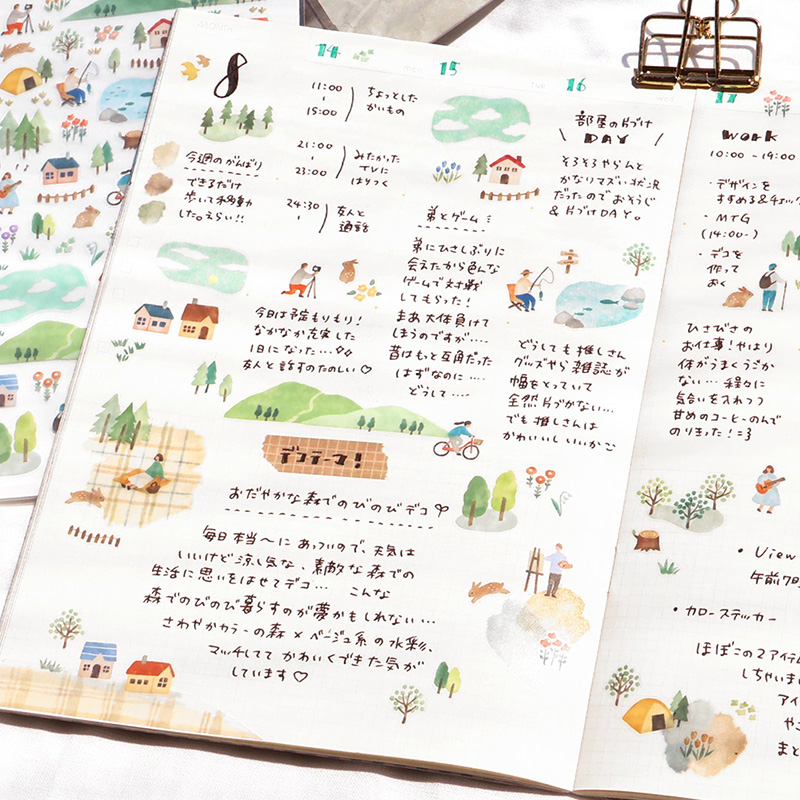 8
今週のがんばり
できるだけ
歩いて移動
した。えらい!!
14
11:00
15:00
ちょっとした
かいもの
21:00
23:00
みたかった
TVに
はりつく
24:30
友人と
通話
今日は予定もりもり!
なかなか充実した
1日になった…
友人と話すのたのしい♡
15
弟とゲーム
弟にひさしぶりに
会えたから色んな
ゲームで対戦
してもらった!
まあ大体負けて
しまうのですが…
昔はもっと互角だった
はずなのに…
どうして…
16
部屋の片づけ
DAY
そろそろやらんと
かなりマズい状況
だったのでおそうじ
&片づけDAY。
どうしても推しさん
グッズやら雑誌が
幅をとっていて
全然片づかない…
でも推しさんは
かわいいしいいかご
17
WORK
10:00 - 19:00
・デザインを
すすめる&チェック
・MTG
(14:00-)
・デコを
作って
おく
ひさびさの
お仕事!やはり
体がうまくうごか
ない…程々に
気合いを入れつつ
甘めのコーヒーのんで
のりきった!=3
デコテーマ!
おだやかな森でのびのびデコ
毎日本当〜にあっついので、天気は
いいけど涼し気な、素敵な森での
生活に思いをはせてデコ… こんな
森でのびのび暮らすのが夢かもしれない…
さわやかカラーの森×ベージュ系の水彩、
マッチしてて かわいくできた気が
しています♡
・View
午前7時
・カローステッカー
ほぼこの2アイテム
しちゃいま
アイ
やこ
まと